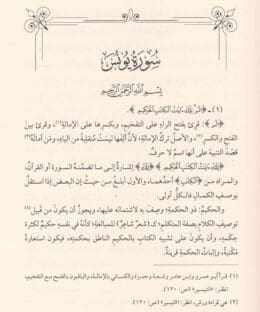 سُورَةُ يُونُسَ
بِسْمِ اللَّهِ الرَّحْمَنِ الرَّحِيمِ
(١) - ﴿الٓر تِلْكَ آيَاتُ الْكِتَابِ الْحَكِيمِ﴾.
﴿الٓر﴾: قرئ بفتح الراءِ على التفخيم، وبكسرها على الإمالة(١)، وقرئ بينَ
الفتحِ والكسرِ(٢)، والأصلُ تركُ الإمالة؛ لأنَّ ألِفَها ليسَتْ مُنقلِبةً من الياءِ، ومَن أمالَهُ
قصدَ التنبيهَ على أنَّها اسمٌ لا حرفٌ.
﴿تِلْكَ آيَاتُ الْكِتَابِ الْحَكِيمِ﴾ إشارةٌ إلى ما تضمَّنَتْهُ السورةُ أو القرآنُ،
والمرادُ من ﴿الْكِتَابِ﴾ أحدُهما، والأولُ أبلغُ من حيثُ إن البعضَ إذا استقلَّ
بوصفِ الكمالِ فالكلُّ أَولى.
والحكيمُ: ذو الحكمةِ؛ وصِفَ به لاشتمالِه عليها، ويجوزُ أن يكونَ من قَبيلِ
توصيفِ الكلامِ بصفةِ المتكلِّمِ؛ كـ(شعرٌ شاعرٌ) للمبالغةِ؛ كأنَّه في نفسِه حكيمٌ لكثرةِ
حِكَمِه، وأن يكونَ على تشبيهِ الكتابِ بالحكيمِ الناطقِ بحكمتِه، فيكون استعارةً
مَكْنيَّةً، وإثباتُ الحكمةِ قرينةً.
(١) قرأ أبو عمرو وابن عامر وشعبة وحمزة والكسائي بالإمالة، والباقون بالفتح مع التفخيم،
انظر: «التيسير» (ص: ١٢٠).
(٢) هي قراءة ورش، انظر: «التيسير» (ص: ١٢٠).